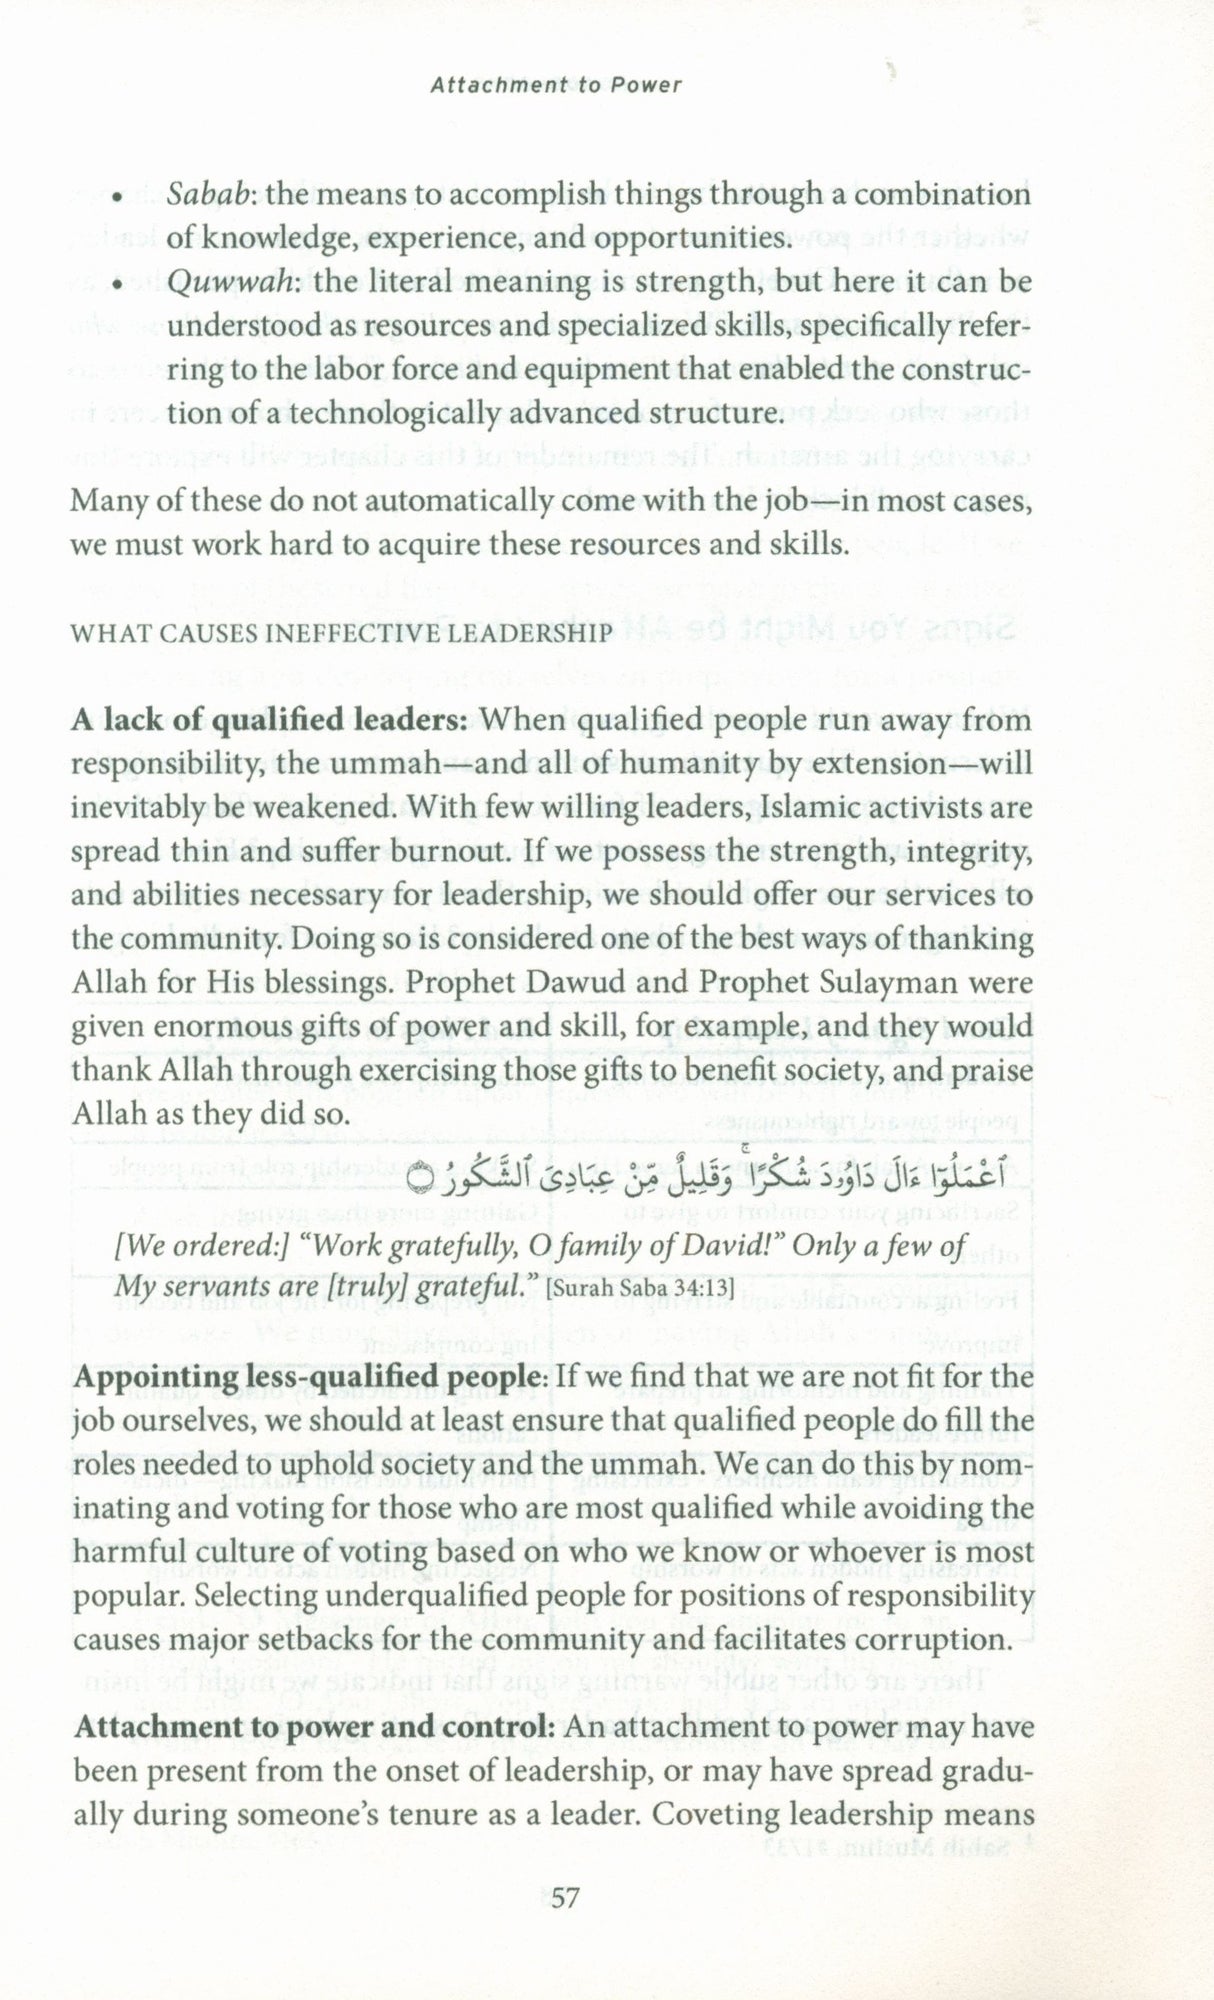 Attachment to Power
• Sabab: the means to accomplish things through a combination
of knowledge, experience, and opportunities.
• Quwwah: the literal meaning is strength, but here it can be
understood as resources and specialized skills, specifically refer-
ring to the labor force and equipment that enabled the construc-
tion of a technologically advanced structure.
Many of these do not automatically come with the job—in most cases,
we must work hard to acquire these resources and skills.
WHAT CAUSES INEFFECTIVE LEADERSHIP
A lack of qualified leaders: When qualified people run away from
responsibility, the ummah—and all of humanity by extension—will
inevitably be weakened. With few willing leaders, Islamic activists are
spread thin and suffer burnout. If we possess the strength, integrity,
and abilities necessary for leadership, we should offer our services to
the community. Doing so is considered one of the best ways of thanking
Allah for His blessings. Prophet Dawud and Prophet Sulayman were
given enormous gifts of power and skill, for example, and they would
thank Allah through exercising those gifts to benefit society, and praise
Allah as they did so.
ٱعْمَلُوٓا۟ ءَالَ دَاوُۥدَ شُكْرًا ۚ وَقَلِيلٌ مِّنْ عِبَادِىَ ٱلشَّكُورُ
[We ordered:] “Work gratefully, O family of David!” Only a few of
My servants are [truly] grateful.” [Surah Saba 34:13]
Appointing less-qualified people: If we find that we are not fit for the
job ourselves, we should at least ensure that qualified people do fill the
roles needed to uphold society and the ummah. We can do this by nom-
inating and voting for those who are most qualified while avoiding the
harmful culture of voting based on who we know or whoever is most
popular. Selecting underqualified people for positions of responsibility
causes major setbacks for the community and facilitates corruption.
Attachment to power and control: An attachment to power may have
been present from the onset of leadership, or may have spread gradu-
ally during someone’s tenure as a leader. Coveting leadership means
57